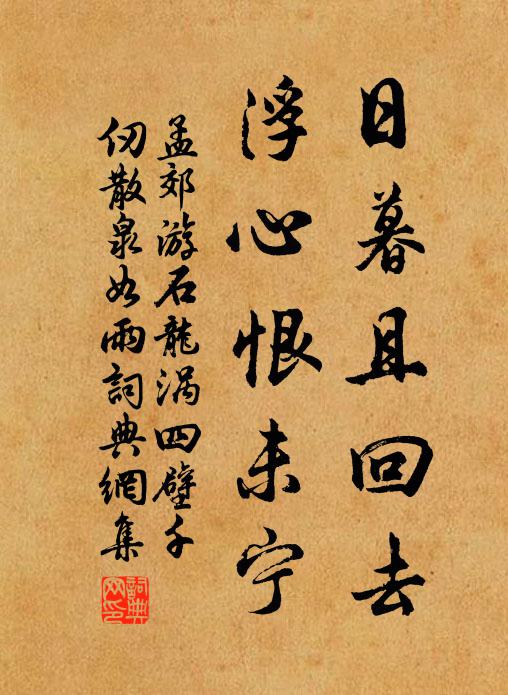 日暮且回去
浮心恨未宁
孟郊游石龍涡四壁千
仞散泉如雨詞典網集
詞典网印